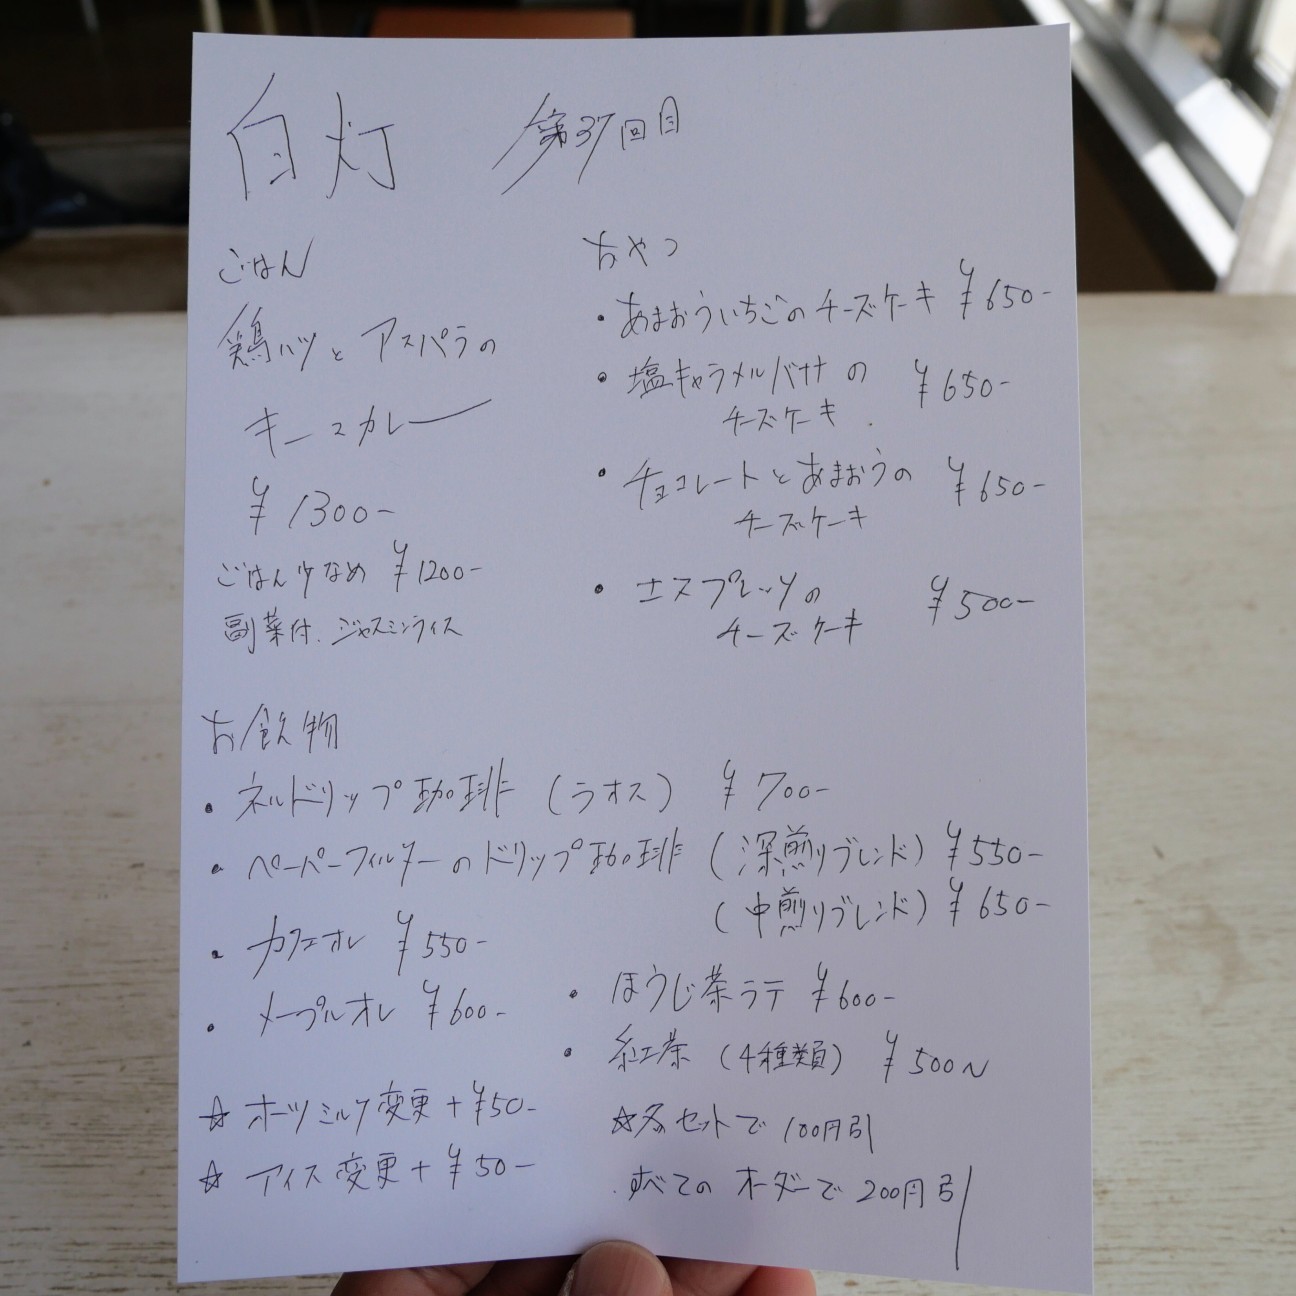 白灯 第37回目
ごはん
鶏ハツとアスパラの
キーマカレー
¥1300-
ごはん少なめ ¥1200-
副菜付、ジャスミンライス
おやつ
・あまおういちごのチーズケーキ ¥650-
・塩キャラメルバナナの ¥650-
チーズケーキ
・チョコレートとあまおうの ¥650-
チーズケーキ
・エスプレッソの ¥500-
チーズケーキ
お飲物
・ネルドリップ珈琲(ラオス) ¥700-
・ペーパーフィルターのドリップ珈琲(深煎りブレンド)¥550-
(中煎りブレンド)¥650-
・カフェオレ ¥550-
・メープルオレ ¥600-
・ほうじ茶ラテ ¥600-
・紅茶(4種類) ¥500~
☆オーツミルク変更+¥50-
☆アイス変更+¥50-
☆各セットで100円引
すべてのオーダーで200円引